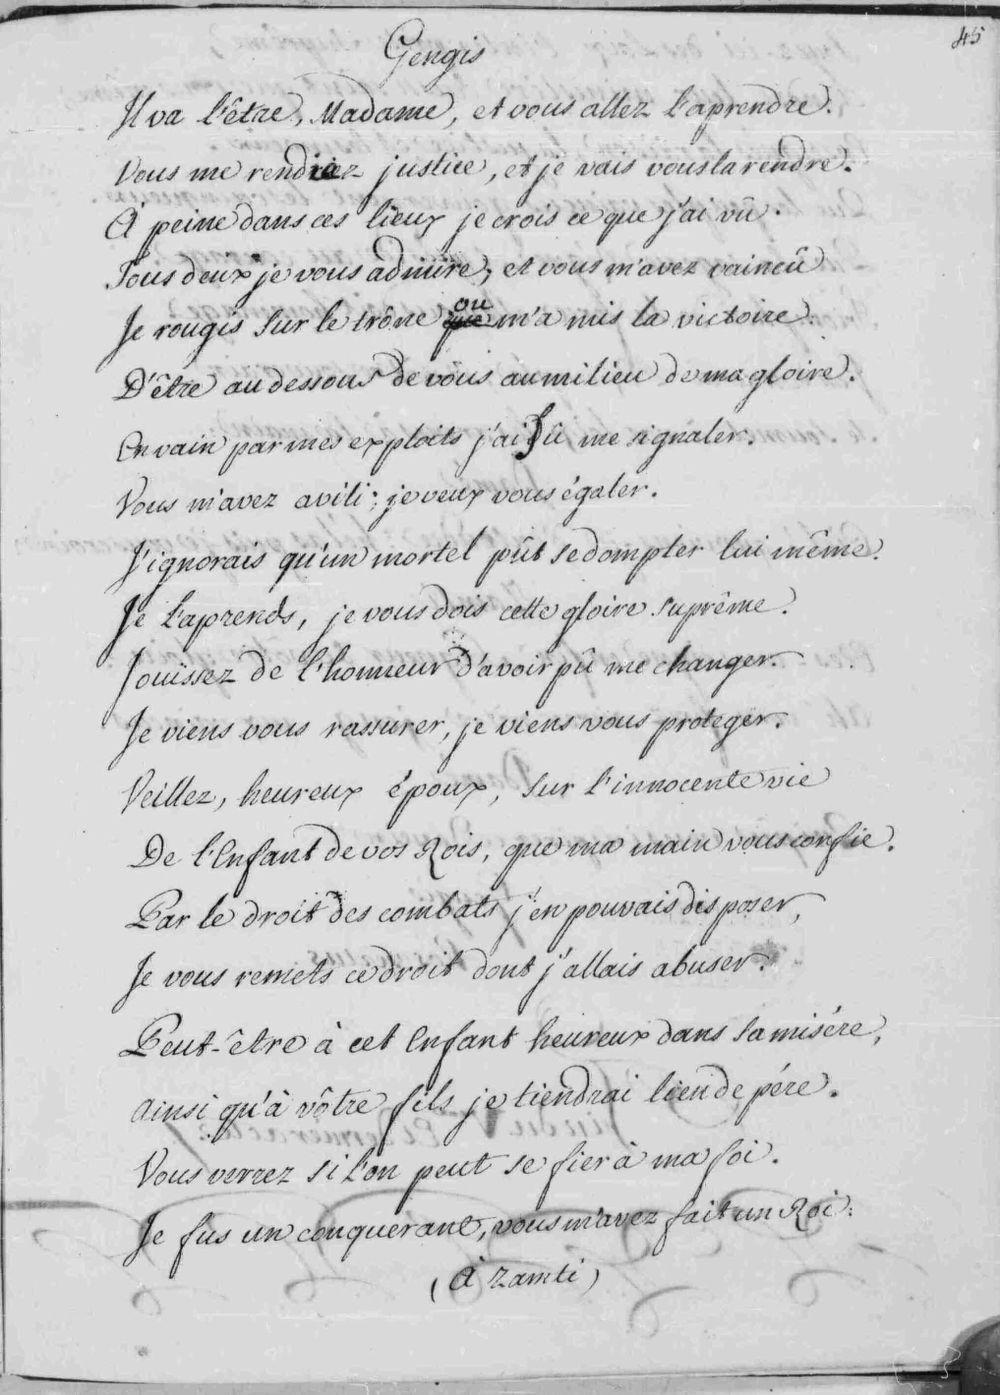 45
Gengis
Il va l'être, Madame, et vous allez l'aprendre.
Vous me rendiez justice, et je vais vous la rendre.
À peine dans ces lieux je crois ce que j'ai vû.
Tous deux je vous admire, et vous m'avez vaincû
Je rougis sur le trône ou m'a mis la victoire.
D'être au dessous de vous au milieu de ma gloire.
En vain par mes exploits j'ai sû me signaler.
Vous m'avez avili ; je veux vous égaler.
J'ignorais qu'un mortel pût se dompter lui même.
Je l'aprends, je vous dois cette gloire suprême.
Jouissez de l'honneur d'avoir pû me changer.
Je viens vous rassurer, je viens vous proteger.
Veillez, heureux époux, sur l'innocente vie
De l'Enfant de vos Rois, que ma main vous confie.
Par le droit des combats j'en pouvais disposer,
Je vous remets ce droit dont j'allais abuser.
Peut-être à cet Enfant heureux dans sa misére,
ainsi qu'à vôtre fils je tiendrai lieu de pére.
Vous verrez si l'on peut se fier à ma foi.
Je fus un conquerant, vous m'avez fait un Roi.
(à Zamti)